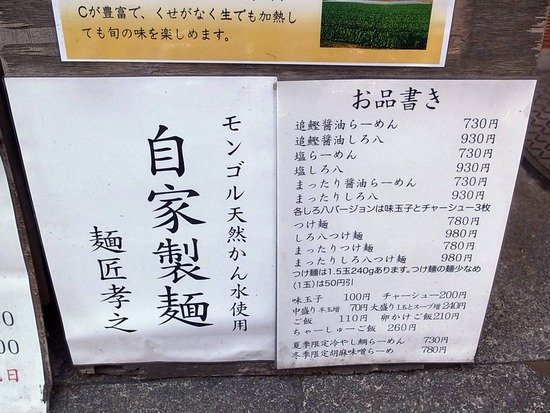 Cが豊富で、くせがなく生でも加熱し
ても旬の味を楽しめます。
モンゴル天然かん水使用
自家製麺
麺匠孝之
お品書き
追鰹醤油らーめん 730円
追鰹醤油しろ八 930円
塩らーめん 730円
塩しろ八 930円
まったり醤油らーめん 730円
まったりしろ八 930円
各しろ八バージョンは味玉子とチャーシュー3枚
つけ麺 780円
しろ八つけ麺 980円
まったりつけ麺 780円
まったりしろ八つけ麺 980円
つけ麺は1.5玉240gあります。つけ麺の麺少なめ
(1玉)は50円引
味玉子 100円 チャーシュー200円
中盛り 半玉増 70円 大盛り 1玉とスープ増 240円
ご飯 110円 卵かけご飯210円
ちゃーしゅーご飯 260円
夏季限定冷やし鯛らーめん 730円
冬季限定胡麻味噌らーめ 780円
0
00
日